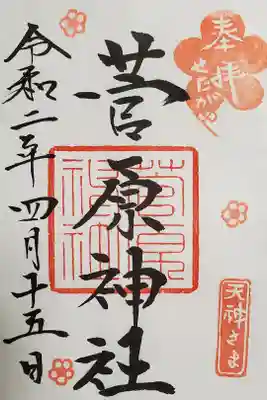 奉拝
せたがや
菅原神社
天神さま
令和二年四月十五日